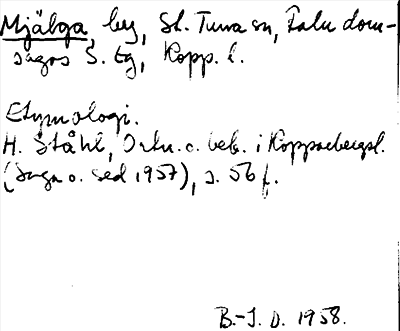 Mjälga, by, St. Tuna sn, Falu dom-
sagas S. tg, Kopp. l.
Etymologi.
H. Ståhl, Ortn. o. beb. i Kopparbergsl.
(Saga o. Sed 1957), s. 56 f.
B.-I. D. 1958.